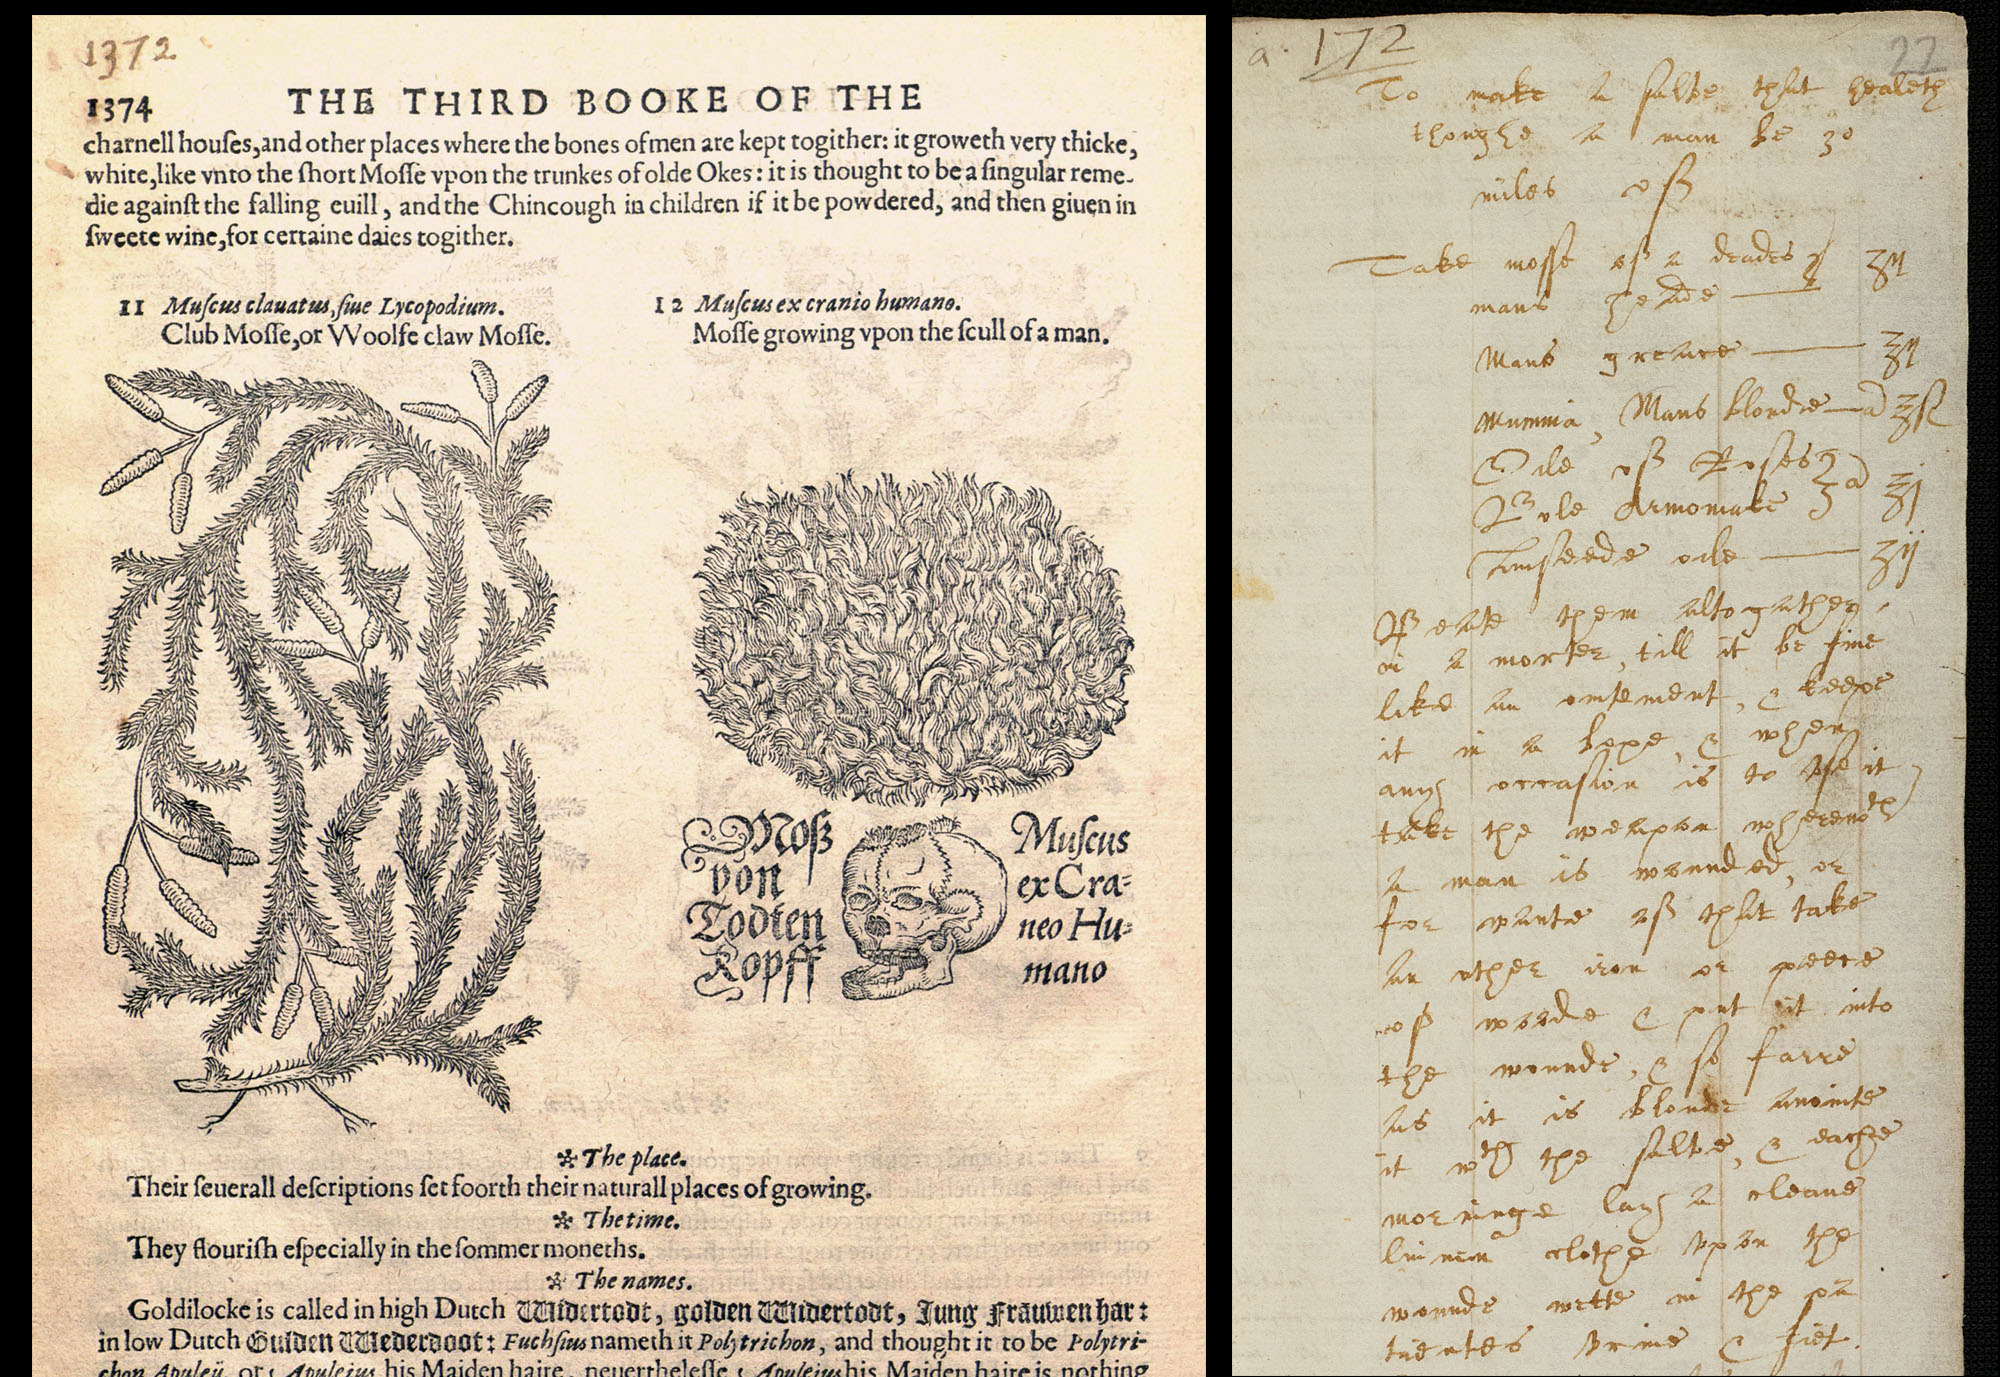 1372
1374 THE THIRD BOOKE OF THE
charnell houſes,and other places where the bones of men are kept togither: it groweth very thicke,
white,like vnto the ſhort Moſſe vpon the trunkes of olde Okes: it is thought to be a ſingular reme-
die againſt the falling euill, and the Chincough in children if it be powdered, and then giuen in
ſweete wine,for certaine daies togither.
11 Muſcus clauatus,ſiue Lycopodium.
Club Moſſe,or Woolfe claw Moſſe.
12 Muſcus ex cranio humano.
Moſſe growing vpon the ſcull of a man.
Moß
von
Todten
Kopff
Muſcus
ex Cra=
neo Hu=
mano
❧ The place.
Their ſeuerall deſcriptions ſet foorth their naturall places of growing.
❧ The time.
They flouriſh eſpecially in the ſommer moneths.
❧ The names.
Goldilocke is called in high Dutch Widertodt, golden Widertodt, Jung Frauwen har:
in low Dutch Gulden Wederdoot: Fuchſius nameth it Polytrichon, and thought it to be Polytri-
chon Apuleij, or Apuleius his Maiden haire, neuertheleſſe Apuleius his Maiden haire is nothing
a. 172 27
To make a salve that healeth
thoughe a man be 30
miles off
Take mosse of a deades
mans heade ʒij
Mans greace ʒij
Mummia, Mans bloude a ʒſſ
Oile of Roses
Bole Armoniake a ʒj
Linseede oile ʒij
Beate them altogather,
in a morter, till it be fine
like an ointement, & keepe
it in a boxe, & when
any occasion is to use it
take the weapon wherewth
a man is wounded, or
for wante of that take
an other iron or peece
of woode & put it into
the wounde, & so farre
as it is bloude anointe
it wth the salve, & eache
morninge lay a cleane
linnen clothe upon the
wounde wette in the pa
tientes urine & fiet.